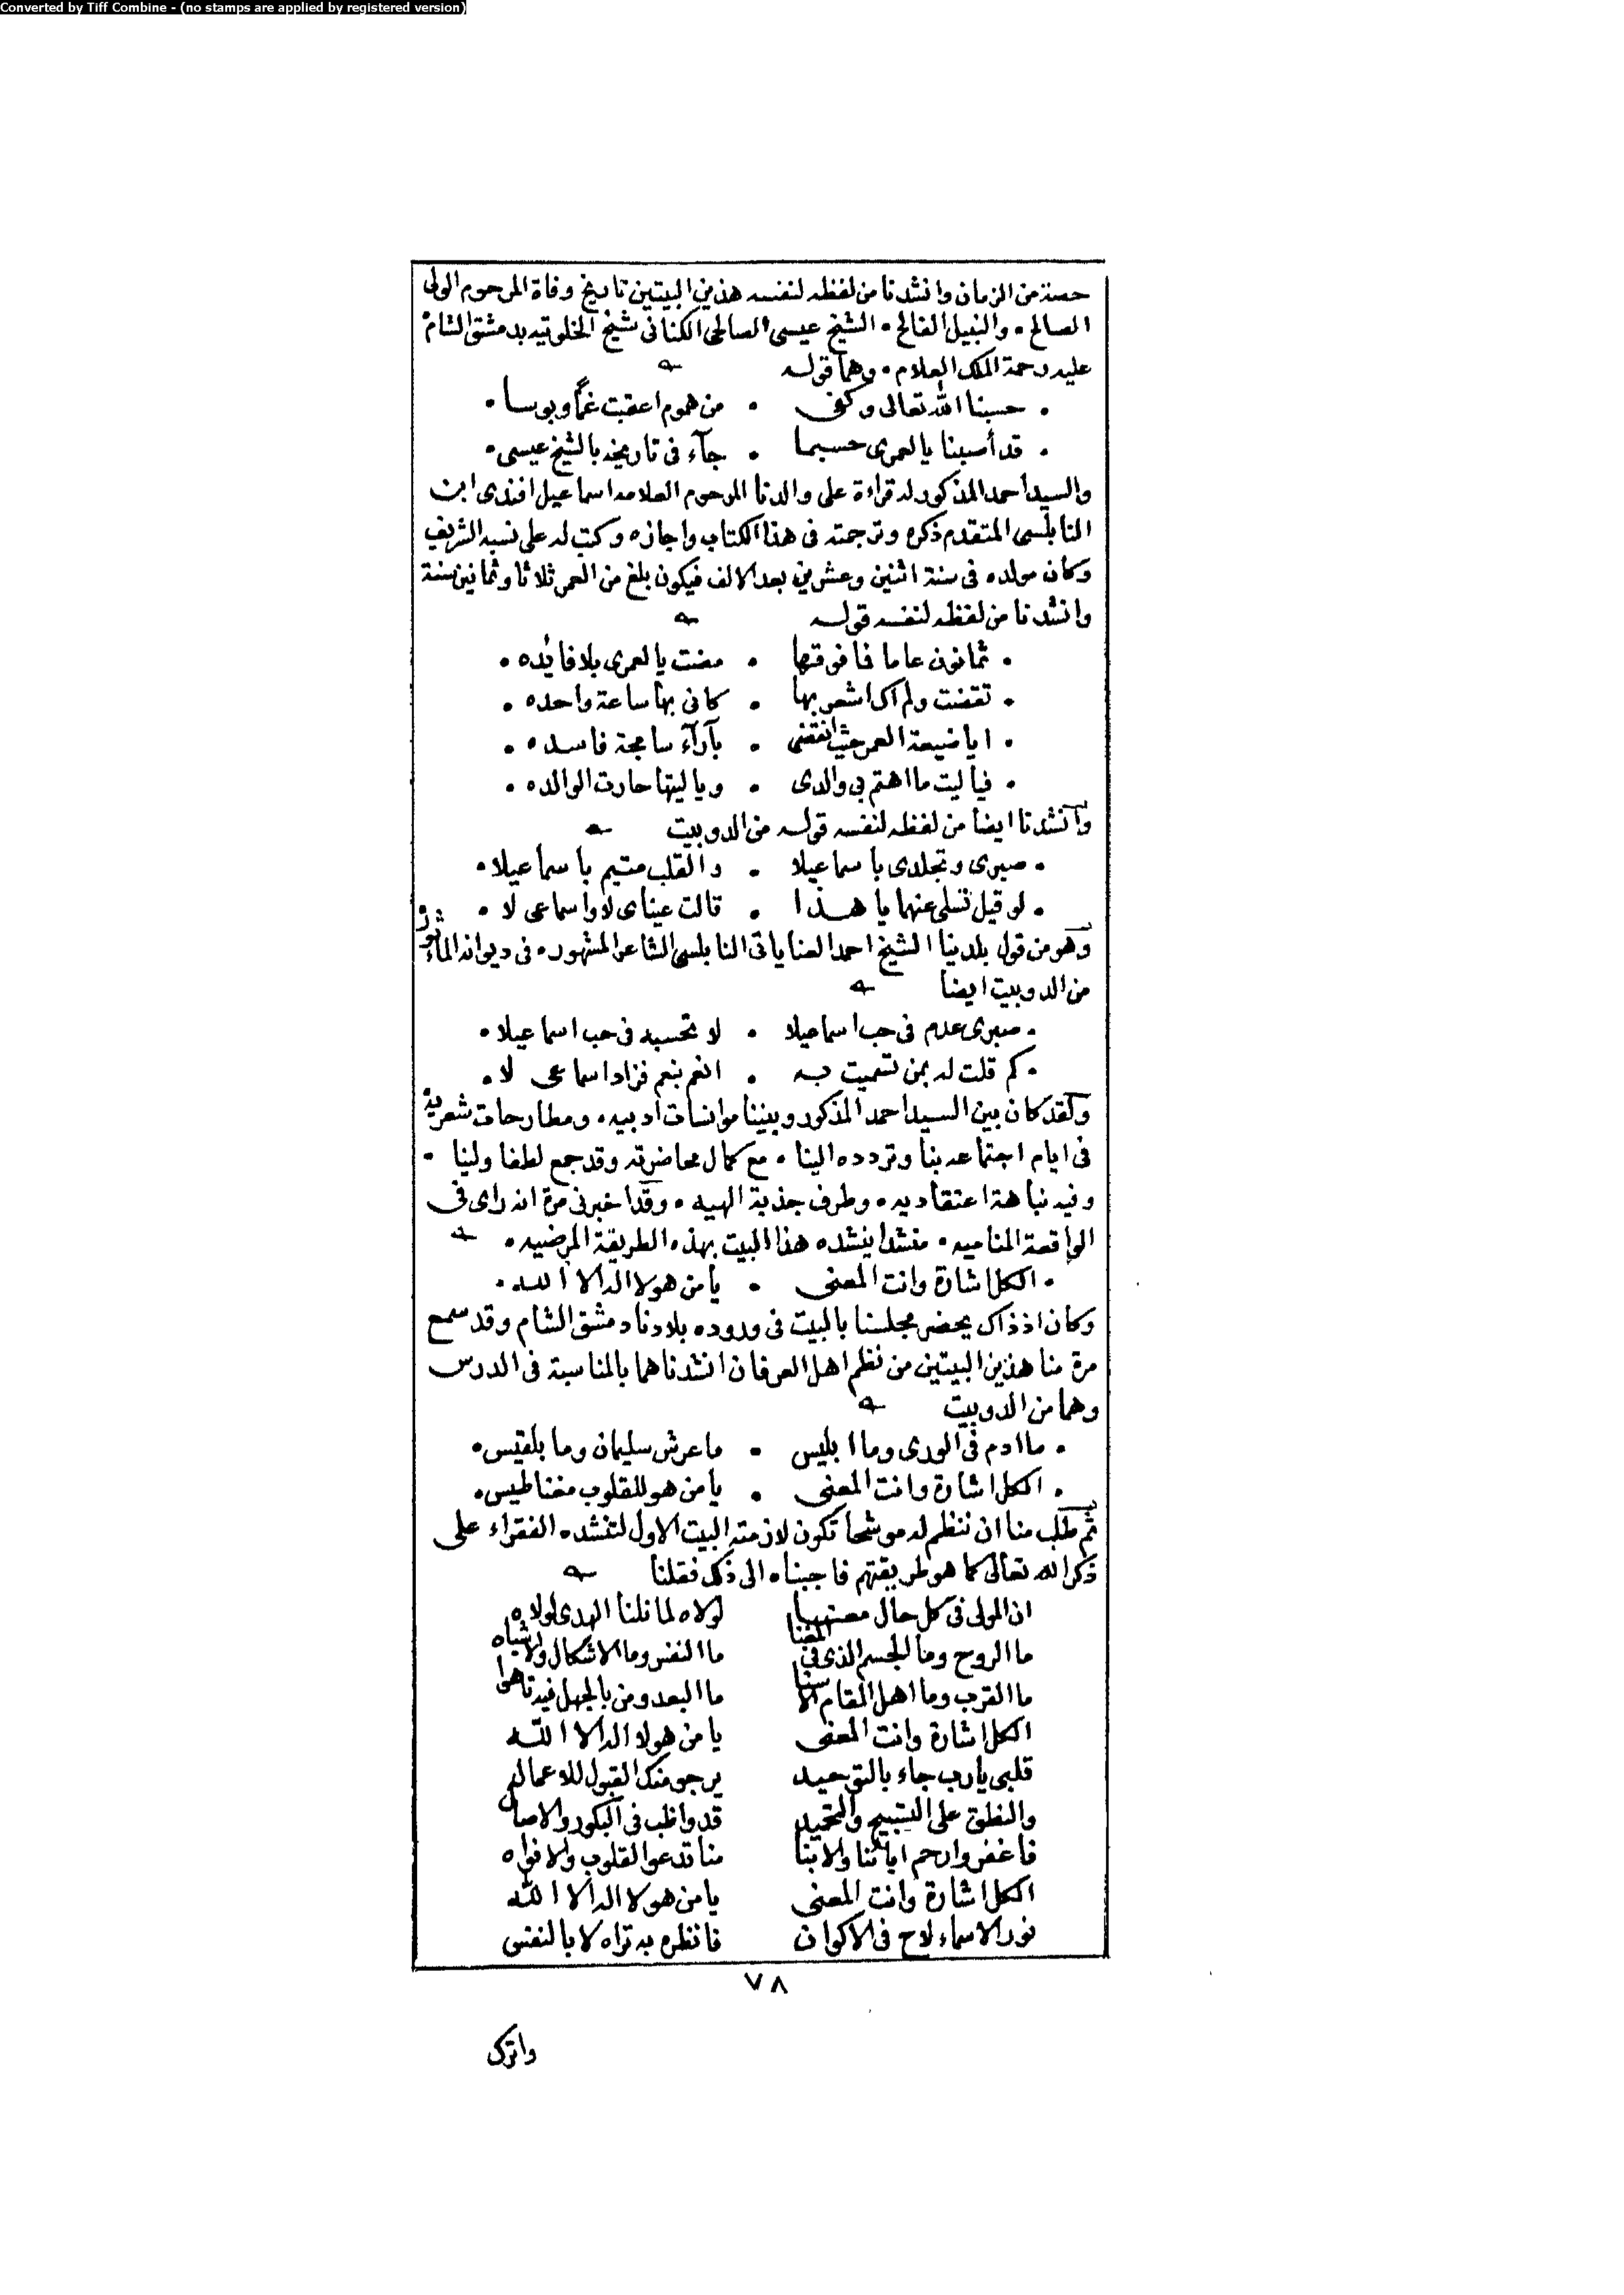 Converted by Tiff Combine - (no stamps are applied by registered version)
حصة من الزمان وانشدنا من لفظه لنفسه هذين البيتين تاريخ وفاة المرحوم الولى
الصالح • والنبيل الفالح • الشيخ عيسى الصالحى الكنانى شيخ الخلوتيه بدمشق الشام
عليه رحمة الملك العلام • وهما قوله
• حسبنا الله تعالى وكفى • من هموم اعقبت غمّا وبوسا •
• قد أسينا يا لعمرى حسبما • جآء فى تاريخه بالشيخ عيسى •
والسيد احمد المذكور له قراءة على والدنا المرحوم العلامه اسماعيل افندى ابن
النابلسى المتقدم ذكره وترجمته فى هذا الكتاب واجازه وكتب له على نسبه الشريف
وكان مولده فى سنة اثنين وعشرين بعد الالف فيكون بلغ من العمر ثلاثا وثمانين سنة
وانشدنا من لفظه لنفسه قوله
• ثمانون عاما فما فوقها • مضت يا لعمرى بلا فائده •
• تقضت ولم اك اشعر بها • كانى بها ساعة واحده •
• ايا ضيعة العمر حيث انقضى • بآرآء سامجة فاسده •
• فيا ليت ما اهتم بى والدى • ويا ليتها حارت الوالده •
وانشدنا ايضا من لفظه لنفسه قوله من الدوبيت
• صبرى وتجلدى با سماعيلا • والقلب متيم با سماعيلا •
• لو قيل تسلى عنهما يا هذا • قالت عيناى لا واسماعى لا •
وهو من قول بلدينا الشيخ احمد العناياتى النابلسى الشاعر المشهور • فى ديوانه الماثور
من الدوبيت ايضا
• صبرى عدم فى حب اسماعيلا • لا تحسبه فى حب اسماعيلا •
• كم قلت له بمن تسميت به • انعم بنعم فزاد اسماعى لا •
ولقد كان بين السيد احمد المذكور وبيننا موانسات ادبيه • ومطارحات شعرية
فى ايام اجتماعه بنا وتردده الينا • مع كمال محاضرته وقد جمع لطفا ولينا •
وفيه نباهة اعتقاديه • وطرف جذبة الهيه • وقد اخبرنى مرة انه راى فى
الواقعة المناميه • منشدا ينشده هذا البيت بهذه الطريقة المرضيه •
• الكل اشارة وانت المعنى • يا من هو لا اله الا الله •
وكان اذ ذاك يحضر مجلسنا بالبيت فى وروده بلادنا دمشق الشام وقد سمع
مرة منا هذين البيتين من نظم اهل العرفان انشدناهما بالمناسبة فى الدرس
وهما من الدوبيت
• ما ادم فى الورى وما ابليس • ما عرش سليمان وما بلقيس •
• الكل اشارة وانت المعنى • يا من هو للقلوب مغناطيس •
ثم طلب منا ان ننظم له موشحا تكون لازمته البيت الاول لتنشده الفقراء على
ذكر الله تعالى كما هو طريقتهم فاجبناه الى ذلك فقلنا
ان المولى فى كل حال معنا لولاه لما نلنا الهدى لولاه
ما الروح وما الجسم الذى فيه المغنا ما النفس وما الاشكال والاشباه
ما القرب وما اهل المقام الاسنا ما البعد ومن بالجهل فيه تاهوا
الكل اشارة وانت المعنى يا من هو لا اله الا الله
قلبى يا رب جاء بالتوحيد يرجو منك القبول للاعمال
والنطق على التسبيح والتحميد قد واظب فى البكور والاصال
فاغفر وارحم ابائنا والابنا منا تدعو القلوب والافواه
الكل اشارة وانت المعنى يا من هو لا اله الا الله
نور الاسماء لاح فى الاكوان فانظره به تراه لا بالنفس
٧٨
واترك